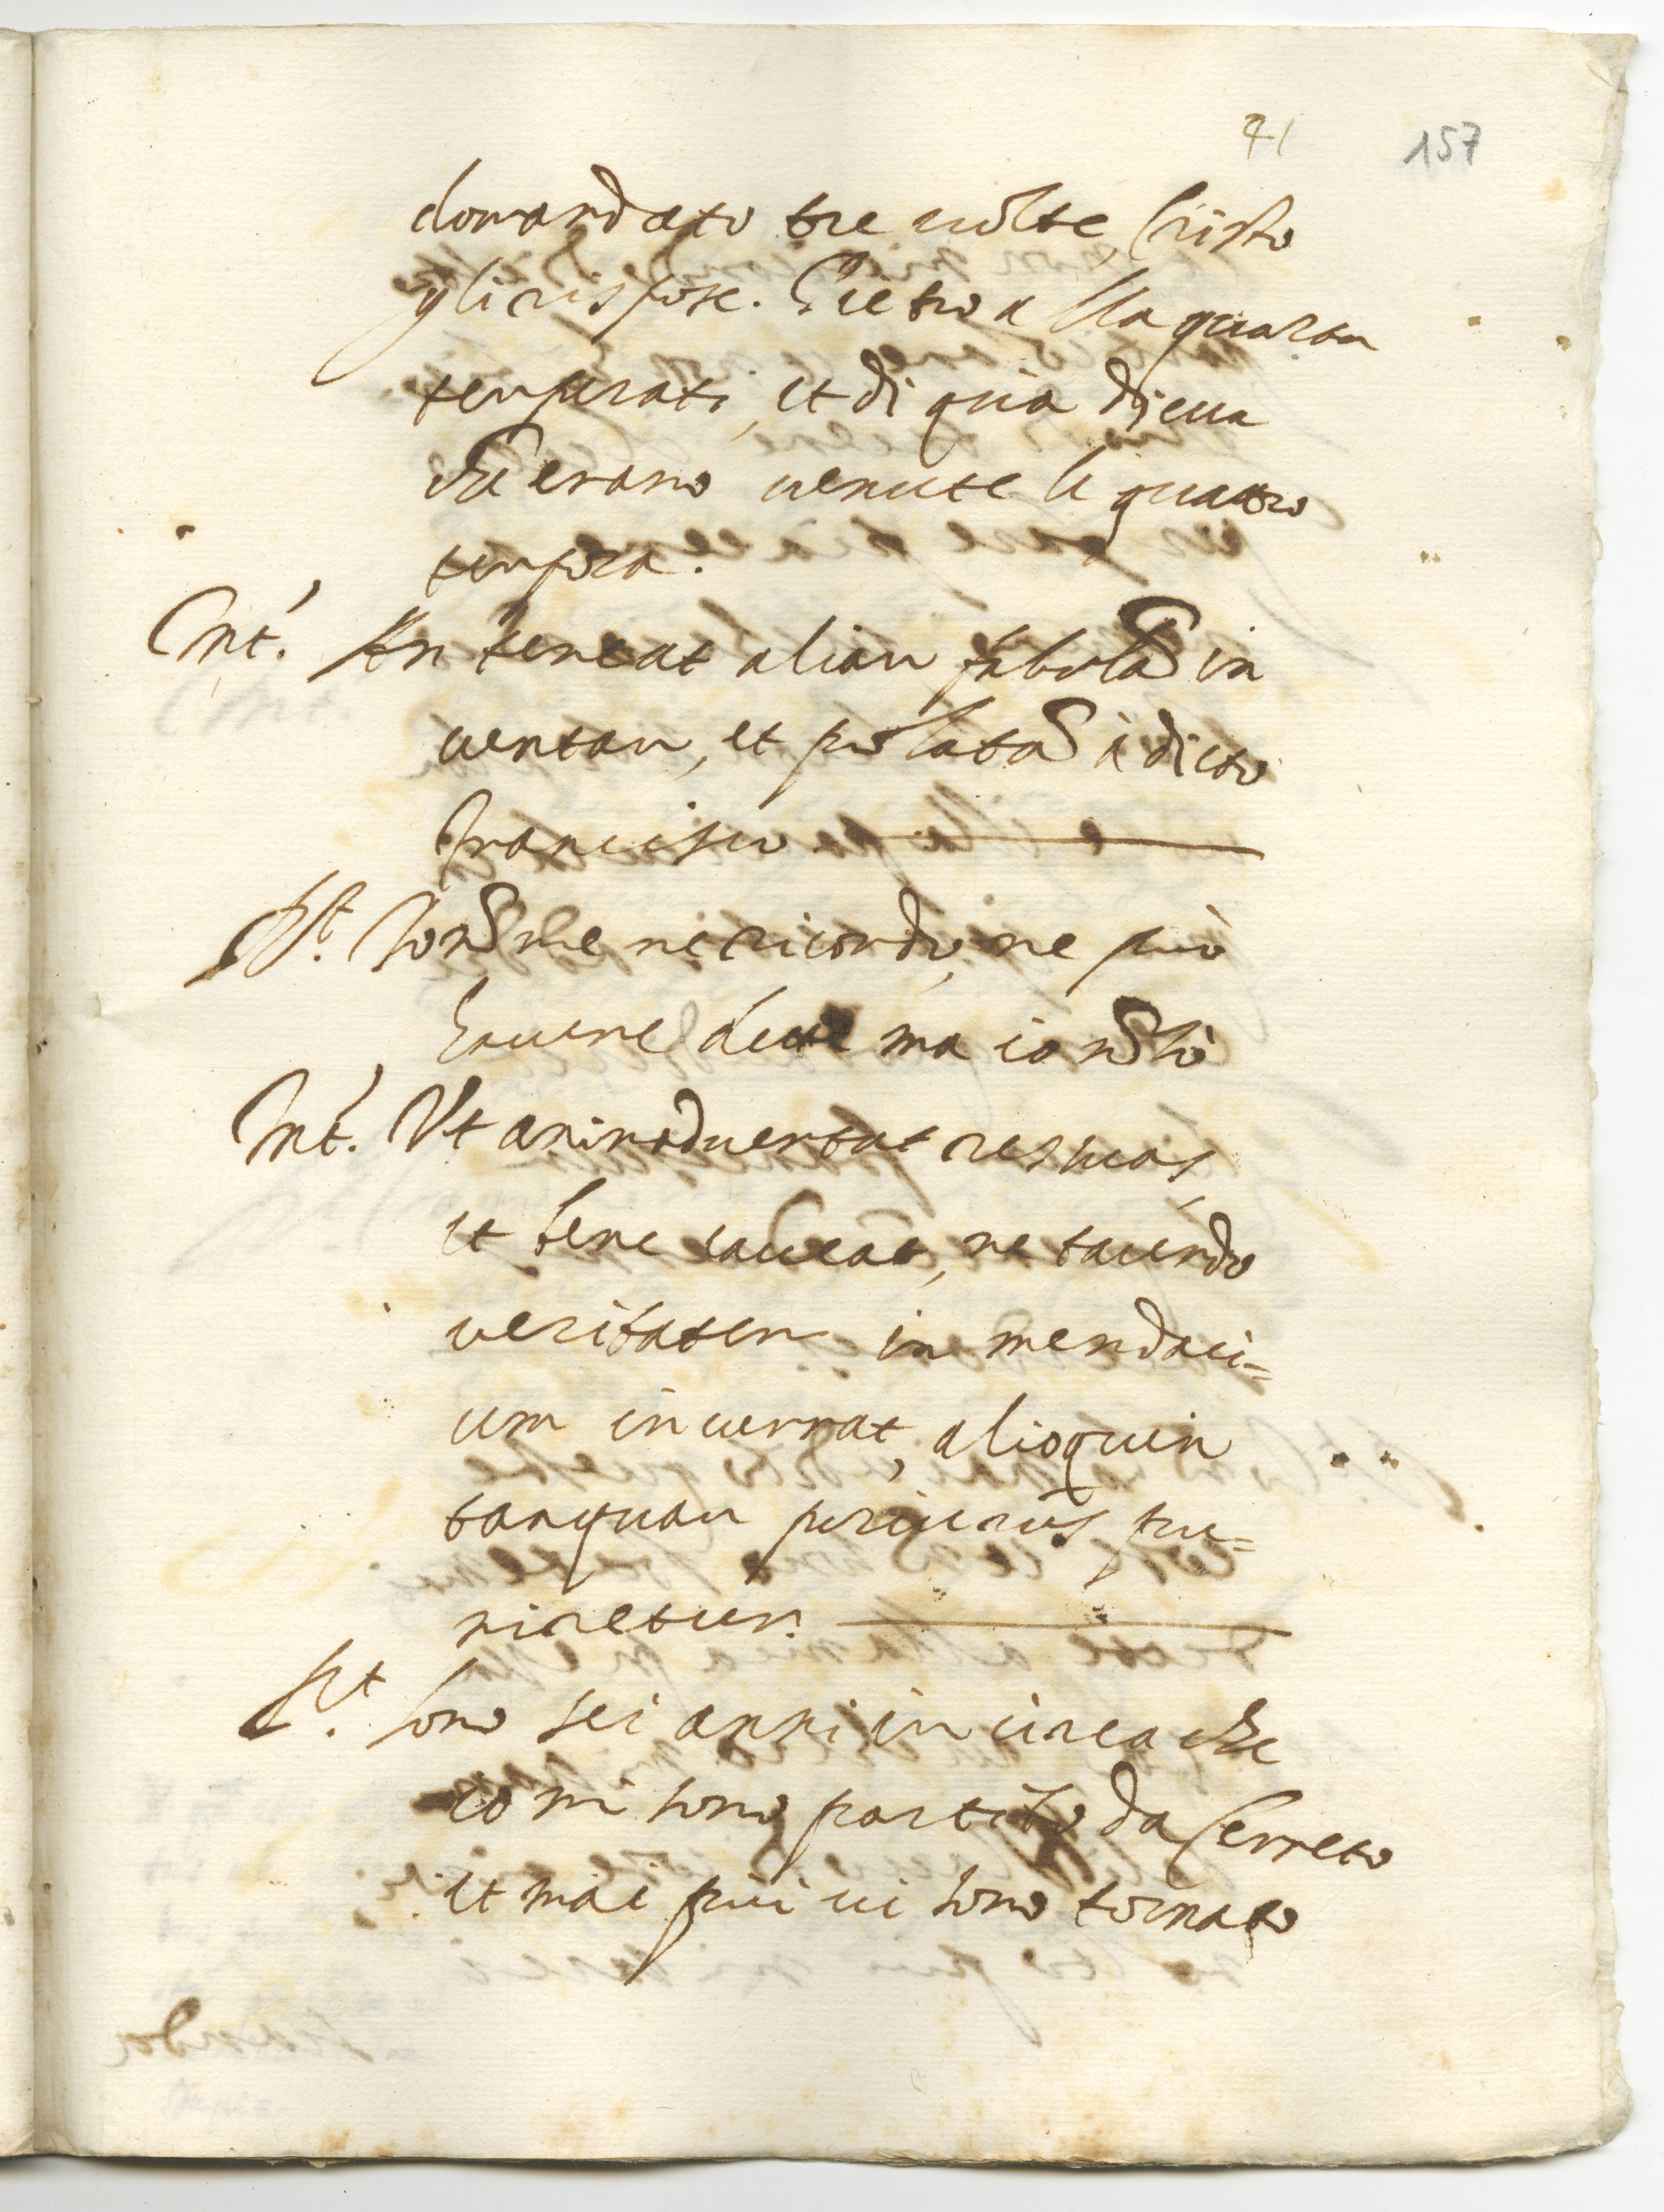 41 157
domandato tre uolte, Cristo
gli rispose. Pietro alla quarta
temperati, et di quà diceua
che erano uenute le quattro
tempora.
Int. An teneat aliam fabulã in
uentam, et prolatã à dicto
Francisco
Rt. Non me ne ricordo, ne può
hauere dette ma io nõ lo sò
Int. Ut animaduertat res suas,
et bene caueat, ne tacendo
ueritatem in mendaci=
um incurrat, alioquin
tanquam periurus pu=
niretur.
Rt. Sono sei anni in circa che
io mi sono partito da Cerreto
et mai piu ui sono tornato